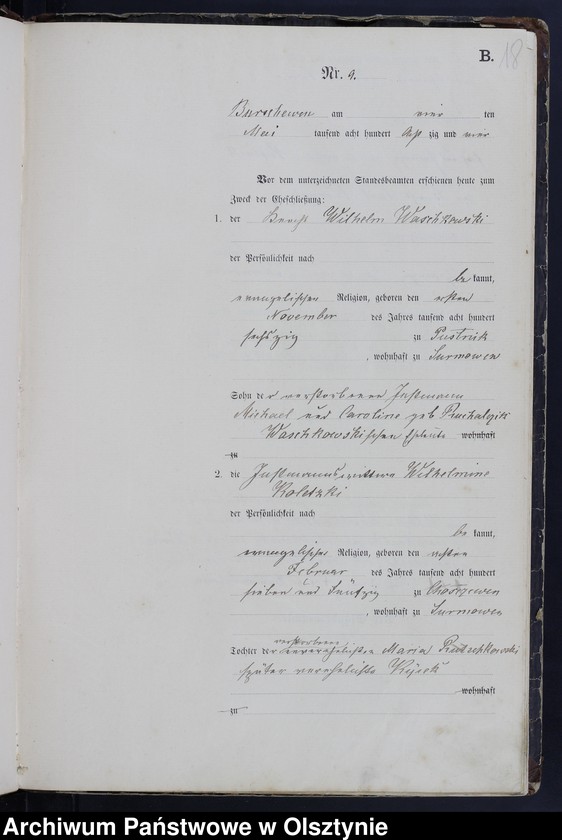 B. 18
Nr. 9.
am vier ten
Mai tausend acht hundert acht zig und vier
Vor dem unterzeichneten Standesbeamten erschienen heute zum
Zweck der Eheschließung:
1. der Knecht Wilhelm Waschkowski
der Persönlichkeit nach
be kannt,
evangelischer Religion, geboren den ersten
November des Jahres tausend acht hundert
sechszig zu Pustnik
, wohnhaft zu Surmowen
Sohn der verstorbenen Instmann
Michael und Caroline geb
Waschkowskischen Eheleute wohnhaft
zu
2. die Instmannswittwe Wilhelmine
Koletzki
der Persönlichkeit nach
be kannt,
evangelischer Religion, geboren den
Februar des Jahres tausend acht hundert
sieben und fünfzig zu
, wohnhaft zu Surmowen
verstorbenen
Tochter der unverehelichten Maria
später verehelichte
wohnhaft
zu
Archiwum Państwowe w Olsztynie